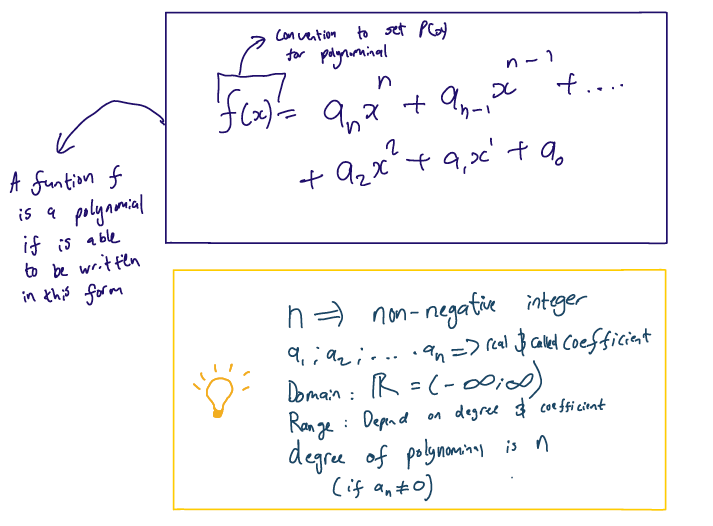 Convention to set P(x)
for polynominal
f(x) = aₙxⁿ + aₙ₋₁xⁿ⁻¹ + ....
+ a₂x² + a₁x¹ + a₀
A funtion f
is a polynomial
if is able
to be written
in this form
n ⇒ non-negative integer
a₁ ; a₂ ; .... aₙ => real & called coefficient
Domain : ℝ = (-∞;∞)
Range : Depend on degree & coefficient
degree of polynominal is n
(if aₙ ≠ 0)